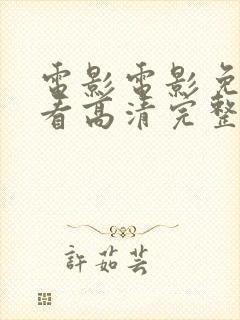 電影電影免
看高清完整
許茹芸